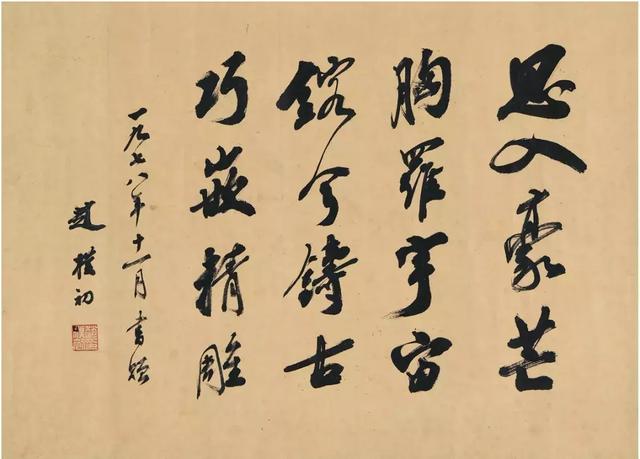 思入豪芒
胸罗宇宙
鎔今铸古
巧嵌精雕
一九七八年十一月书贻
赵朴初